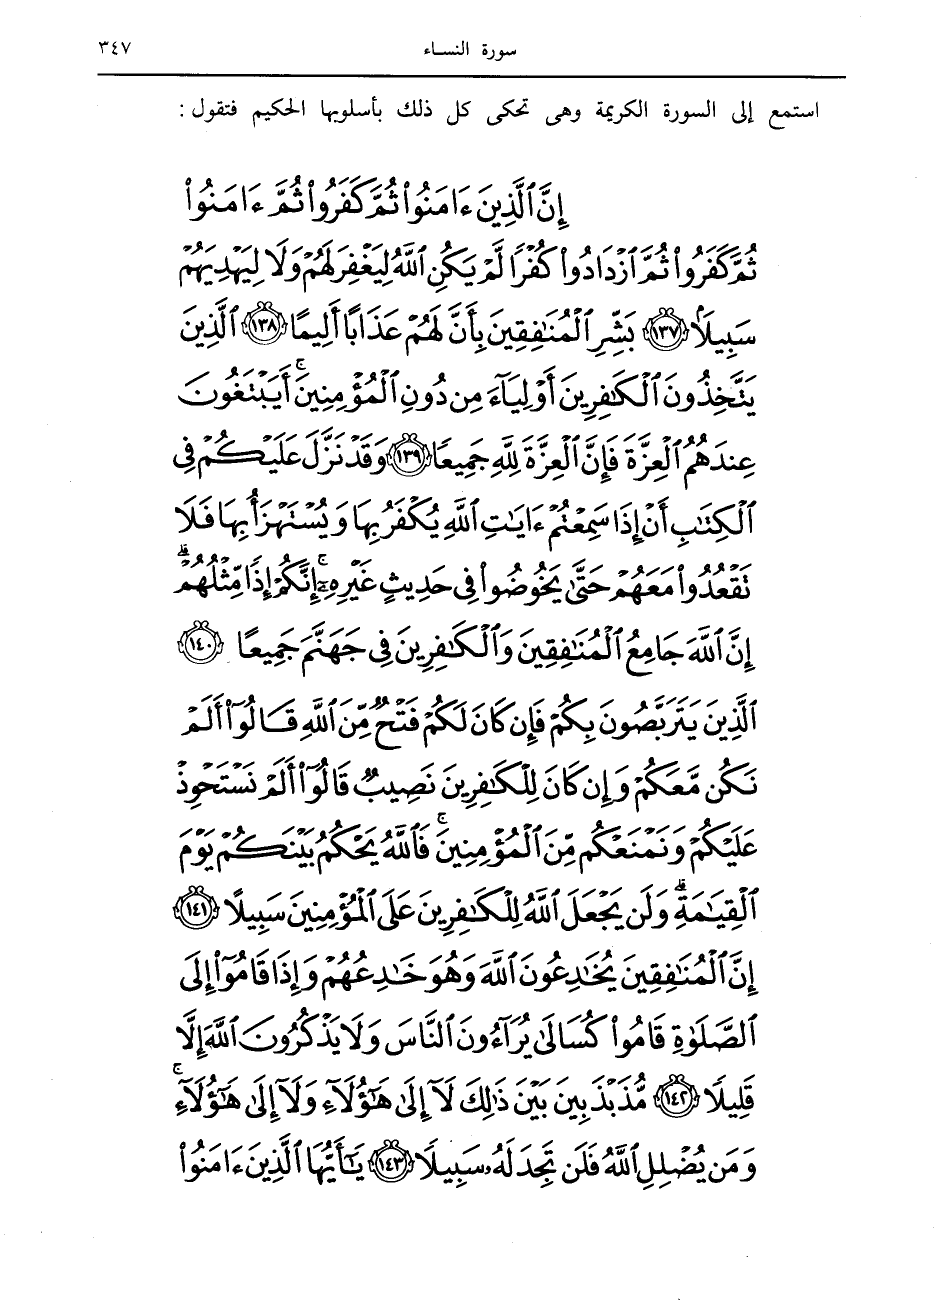 سورة النساء ٣٤٧
استمع إلى السورة الكريمة وهى تحكى كل ذلك بأسلوبها الحكيم فتقول :
إِنَّ ٱلَّذِينَ ءَامَنُوا۟ ثُمَّ كَفَرُوا۟ ثُمَّ ءَامَنُوا۟
ثُمَّ كَفَرُوا۟ ثُمَّ ٱزْدَادُوا۟ كُفْرًا لَّمْ يَكُنِ ٱللَّهُ لِيَغْفِرَ لَهُمْ وَلَا لِيَهْدِيَهُمْ
سَبِيلًۢا ﴿١٣٧﴾ بَشِّرِ ٱلْمُنَٰفِقِينَ بِأَنَّ لَهُمْ عَذَابًا أَلِيمًا ﴿١٣٨﴾ ٱلَّذِينَ
يَتَّخِذُونَ ٱلْكَٰفِرِينَ أَوْلِيَآءَ مِن دُونِ ٱلْمُؤْمِنِينَ ۚ أَيَبْتَغُونَ
عِندَهُمُ ٱلْعِزَّةَ فَإِنَّ ٱلْعِزَّةَ لِلَّهِ جَمِيعًا ﴿١٣٩﴾ وَقَدْ نَزَّلَ عَلَيْكُمْ فِى
ٱلْكِتَٰبِ أَنْ إِذَا سَمِعْتُمْ ءَايَٰتِ ٱللَّهِ يُكْفَرُ بِهَا وَيُسْتَهْزَأُ بِهَا فَلَا
تَقْعُدُوا۟ مَعَهُمْ حَتَّىٰ يَخُوضُوا۟ فِى حَدِيثٍ غَيْرِهِۦٓ ۚ إِنَّكُمْ إِذًا مِّثْلُهُمْ ۗ
إِنَّ ٱللَّهَ جَامِعُ ٱلْمُنَٰفِقِينَ وَٱلْكَٰفِرِينَ فِى جَهَنَّمَ جَمِيعًا ﴿١٤٠﴾
ٱلَّذِينَ يَتَرَبَّصُونَ بِكُمْ فَإِن كَانَ لَكُمْ فَتْحٌ مِّنَ ٱللَّهِ قَالُوٓا۟ أَلَمْ
نَكُن مَّعَكُمْ وَإِن كَانَ لِلْكَٰفِرِينَ نَصِيبٌ قَالُوٓا۟ أَلَمْ نَسْتَحْوِذْ
عَلَيْكُمْ وَنَمْنَعْكُم مِّنَ ٱلْمُؤْمِنِينَ ۚ فَٱللَّهُ يَحْكُمُ بَيْنَكُمْ يَوْمَ
ٱلْقِيَٰمَةِ ۗ وَلَن يَجْعَلَ ٱللَّهُ لِلْكَٰفِرِينَ عَلَى ٱلْمُؤْمِنِينَ سَبِيلًا ﴿١٤١﴾
إِنَّ ٱلْمُنَٰفِقِينَ يُخَٰدِعُونَ ٱللَّهَ وَهُوَ خَٰدِعُهُمْ وَإِذَا قَامُوٓا۟ إِلَى
ٱلصَّلَوٰةِ قَامُوا۟ كُسَالَىٰ يُرَآءُونَ ٱلنَّاسَ وَلَا يَذْكُرُونَ ٱللَّهَ إِلَّا
قَلِيلًا ﴿١٤٢﴾ مُّذَبْذَبِينَ بَيْنَ ذَٰلِكَ لَآ إِلَىٰ هَٰٓؤُلَآءِ وَلَآ إِلَىٰ هَٰٓؤُلَآءِ ۚ
وَمَن يُضْلِلِ ٱللَّهُ فَلَن تَجِدَ لَهُۥ سَبِيلًا ﴿١٤٣﴾ يَٰٓأَيُّهَا ٱلَّذِينَ ءَامَنُوا۟